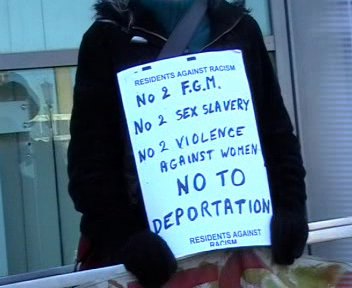 RESIDENTS AGAINST RACISM
NO 2 F.G.M.
NO 2 SEX SLAVERY
NO 2 VIOLENCE
AGAINST WOMEN
NO TO
DEPORTATION
RESIDENTS AGAINST
RACISM